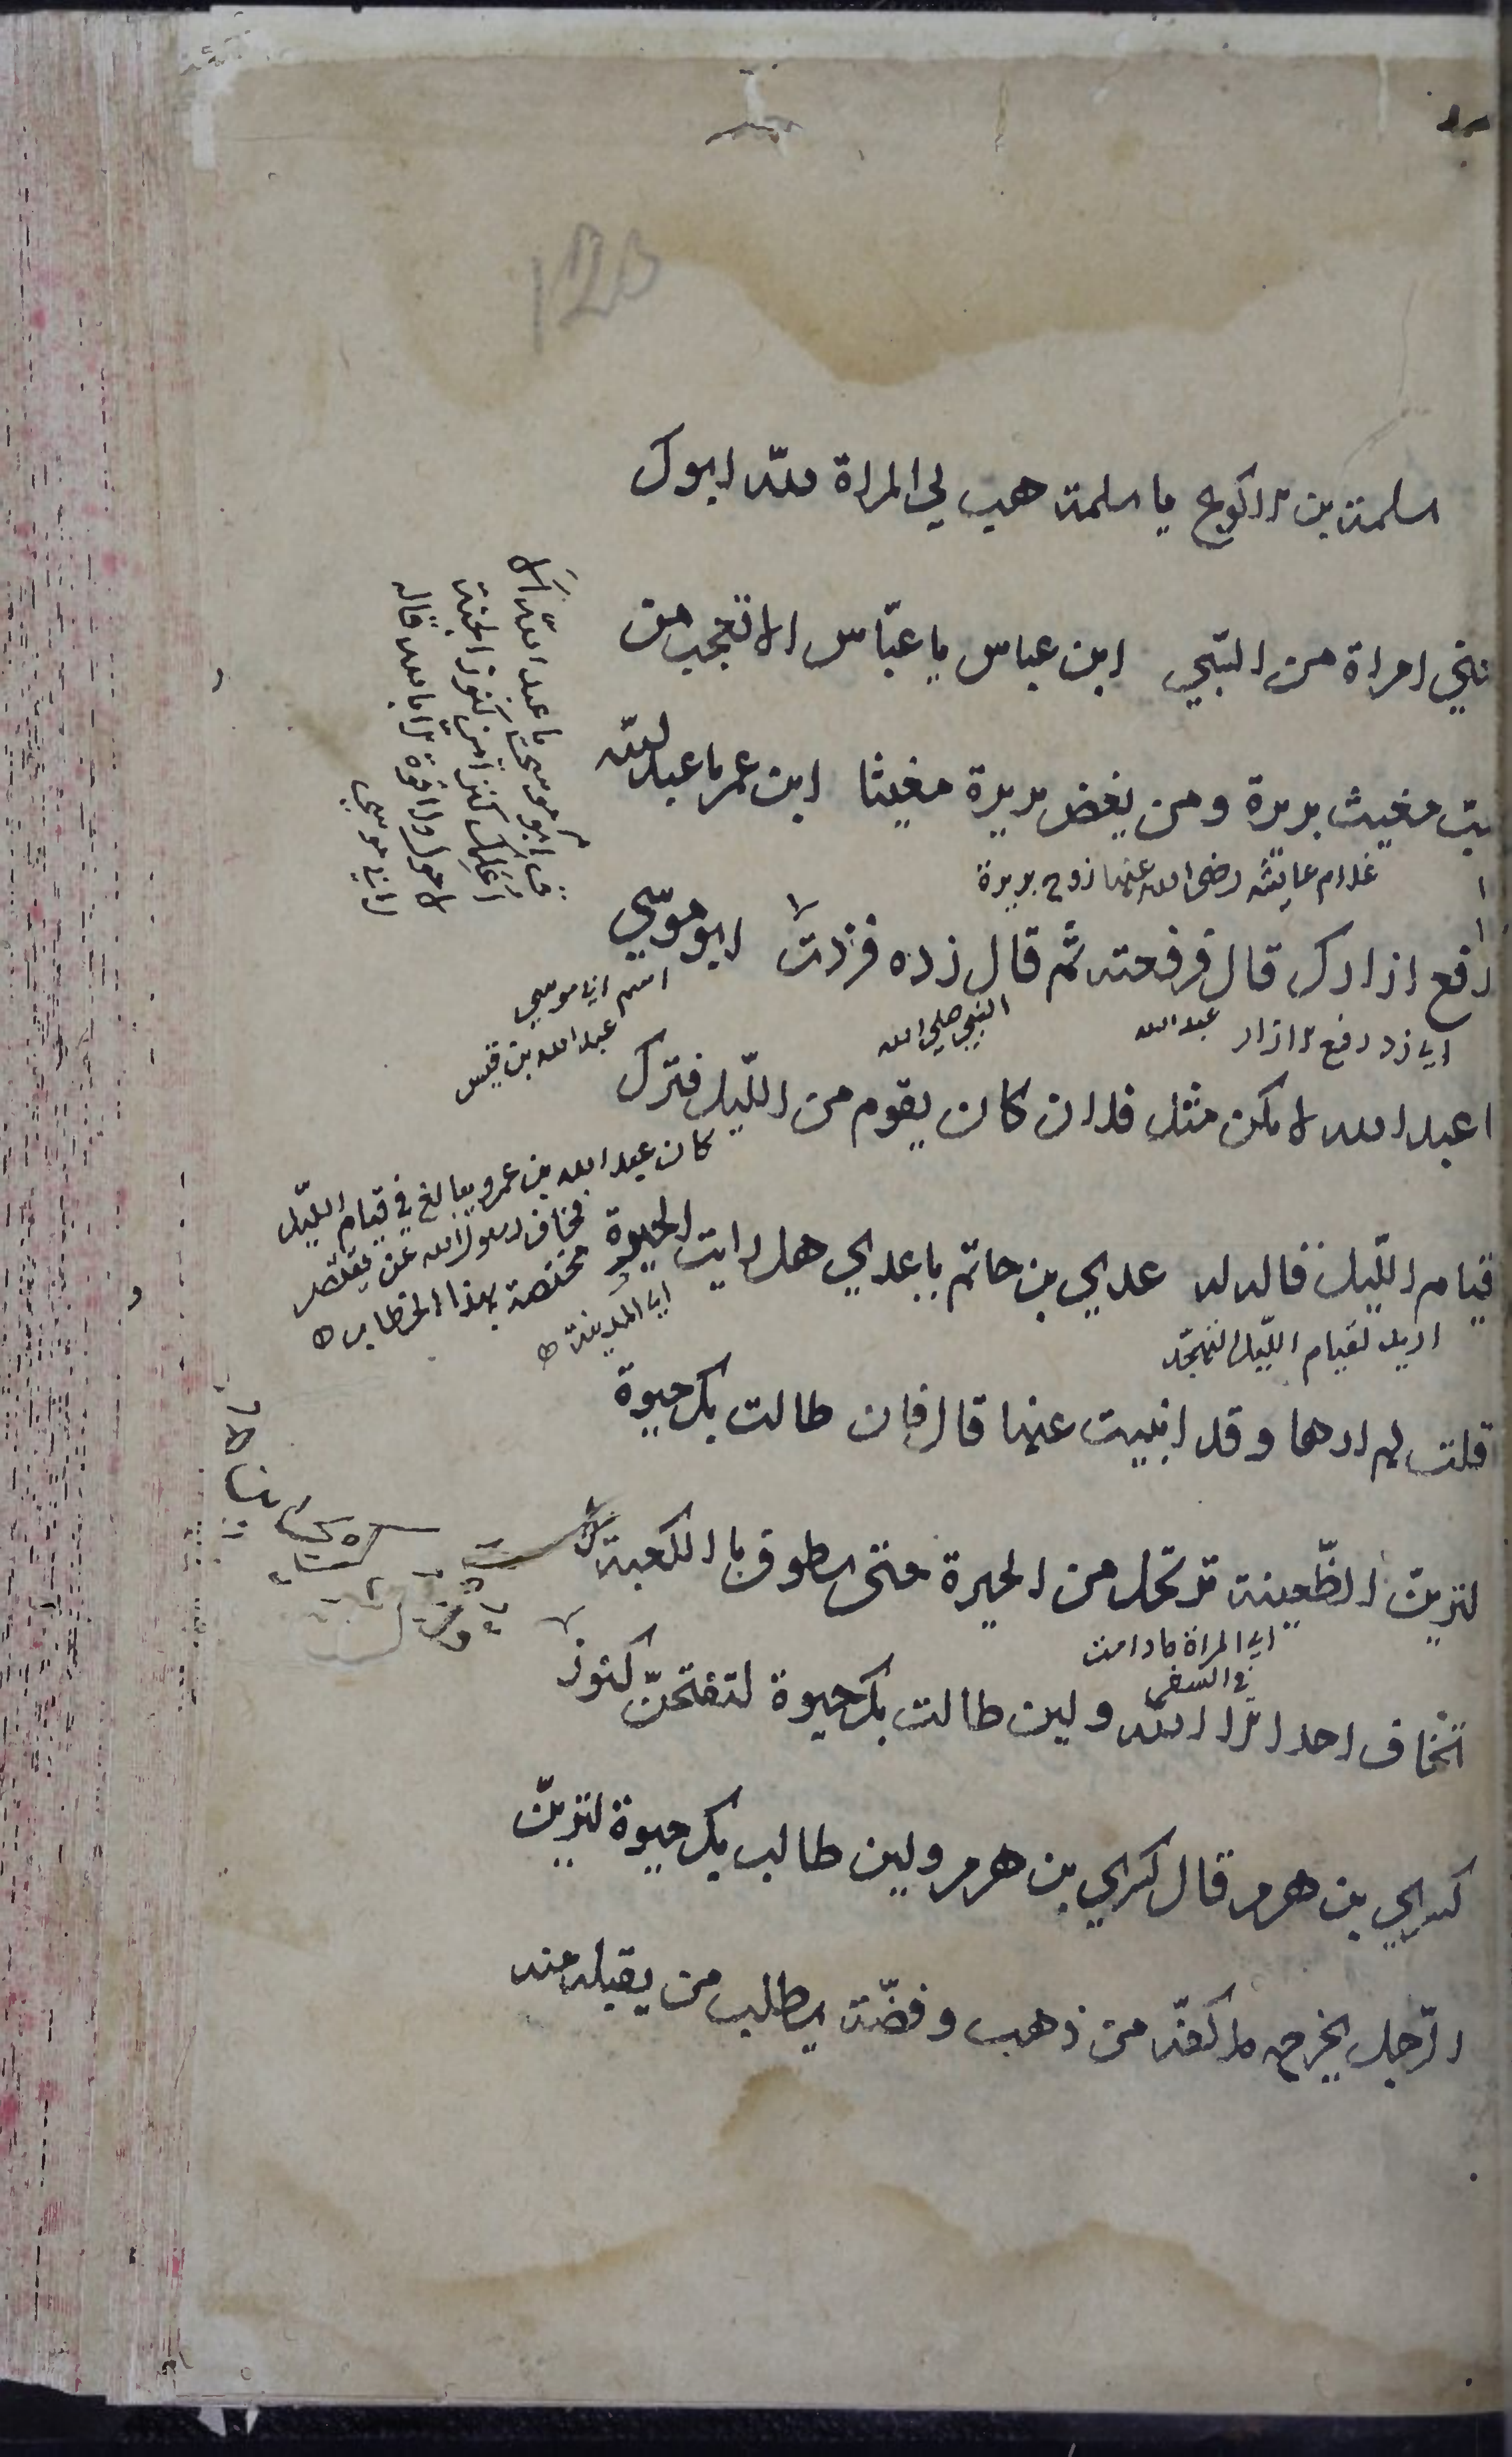 120
سلمة بن الاكوع يا سلمة هب لي المراة لله ابوك
امراة من السّبي ابن عباس يا عبّاس الا تعجب من
مغيث بريرة ومن بغض بريرة مغيثا ابن عمر يا عبد الله
غلام عايشه رضى الله عنها زوج بريرة
ارفع ازارك قال فرفعته ثم قال زده فزدت ابو موسي
اي زد رفع الازار
عبد الله
النبي صلي الله
اسم ابي موسي
عبد الله بن قيس
ق ابو موسى يا عبد الله الا
اعلمك كنزا من كنوز الجنة
لا حول ولا قوة الا بالله قاله
لابي موسي
عبد الله لا تكن مثل فلان كان يقوم من اللّيل فترك
كان عبد الله بن عمرو يبالغ في قيام اللّيل
فخاف رسول الله
مختصة بهذا الخطاب
قيام اللّيل قاله له عدي بن حاتم يا عدي هل رايت الحيرة
اريد لقيام اللّيل التهجّد
اي المدينة
قلت لم ارها وقد انبيت عنها قال فان طالت بك حيوة
لترينّ الظّعينة ترتحل من الحيرة حتى تطوف بالكعبة لا
اي المراة مادامت
في السفر
تخاف احدا الا الله ولين طالت بك حيوة لتفتحنّ كنوز
كسري بن هرمز قال كسري بن هرمز ولين طالت بك حيوة لترينّ
الرّجل يخرج ملا كفّه من ذهب وفضّة يطلب من يقبله منه